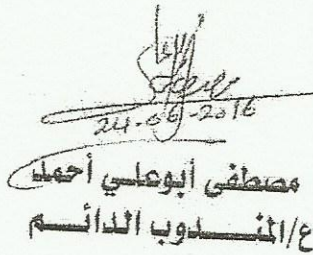 24-06-2016
مصطفى أبوعلي أحمد
ع/المنـــدوب الدائـــم